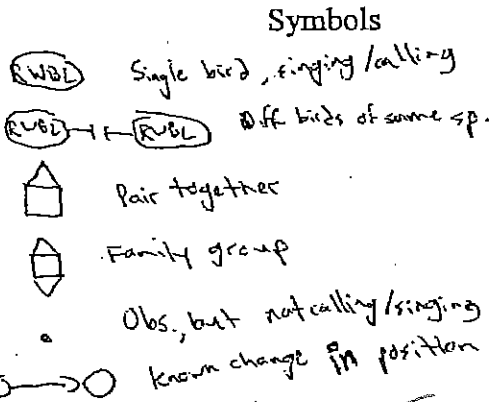 Symbols
RWBL Single bird, singing/calling
RWBL RWBL Diff birds of same sp.
Pair together
Family group
Obs., but not calling/singing
Known change in position